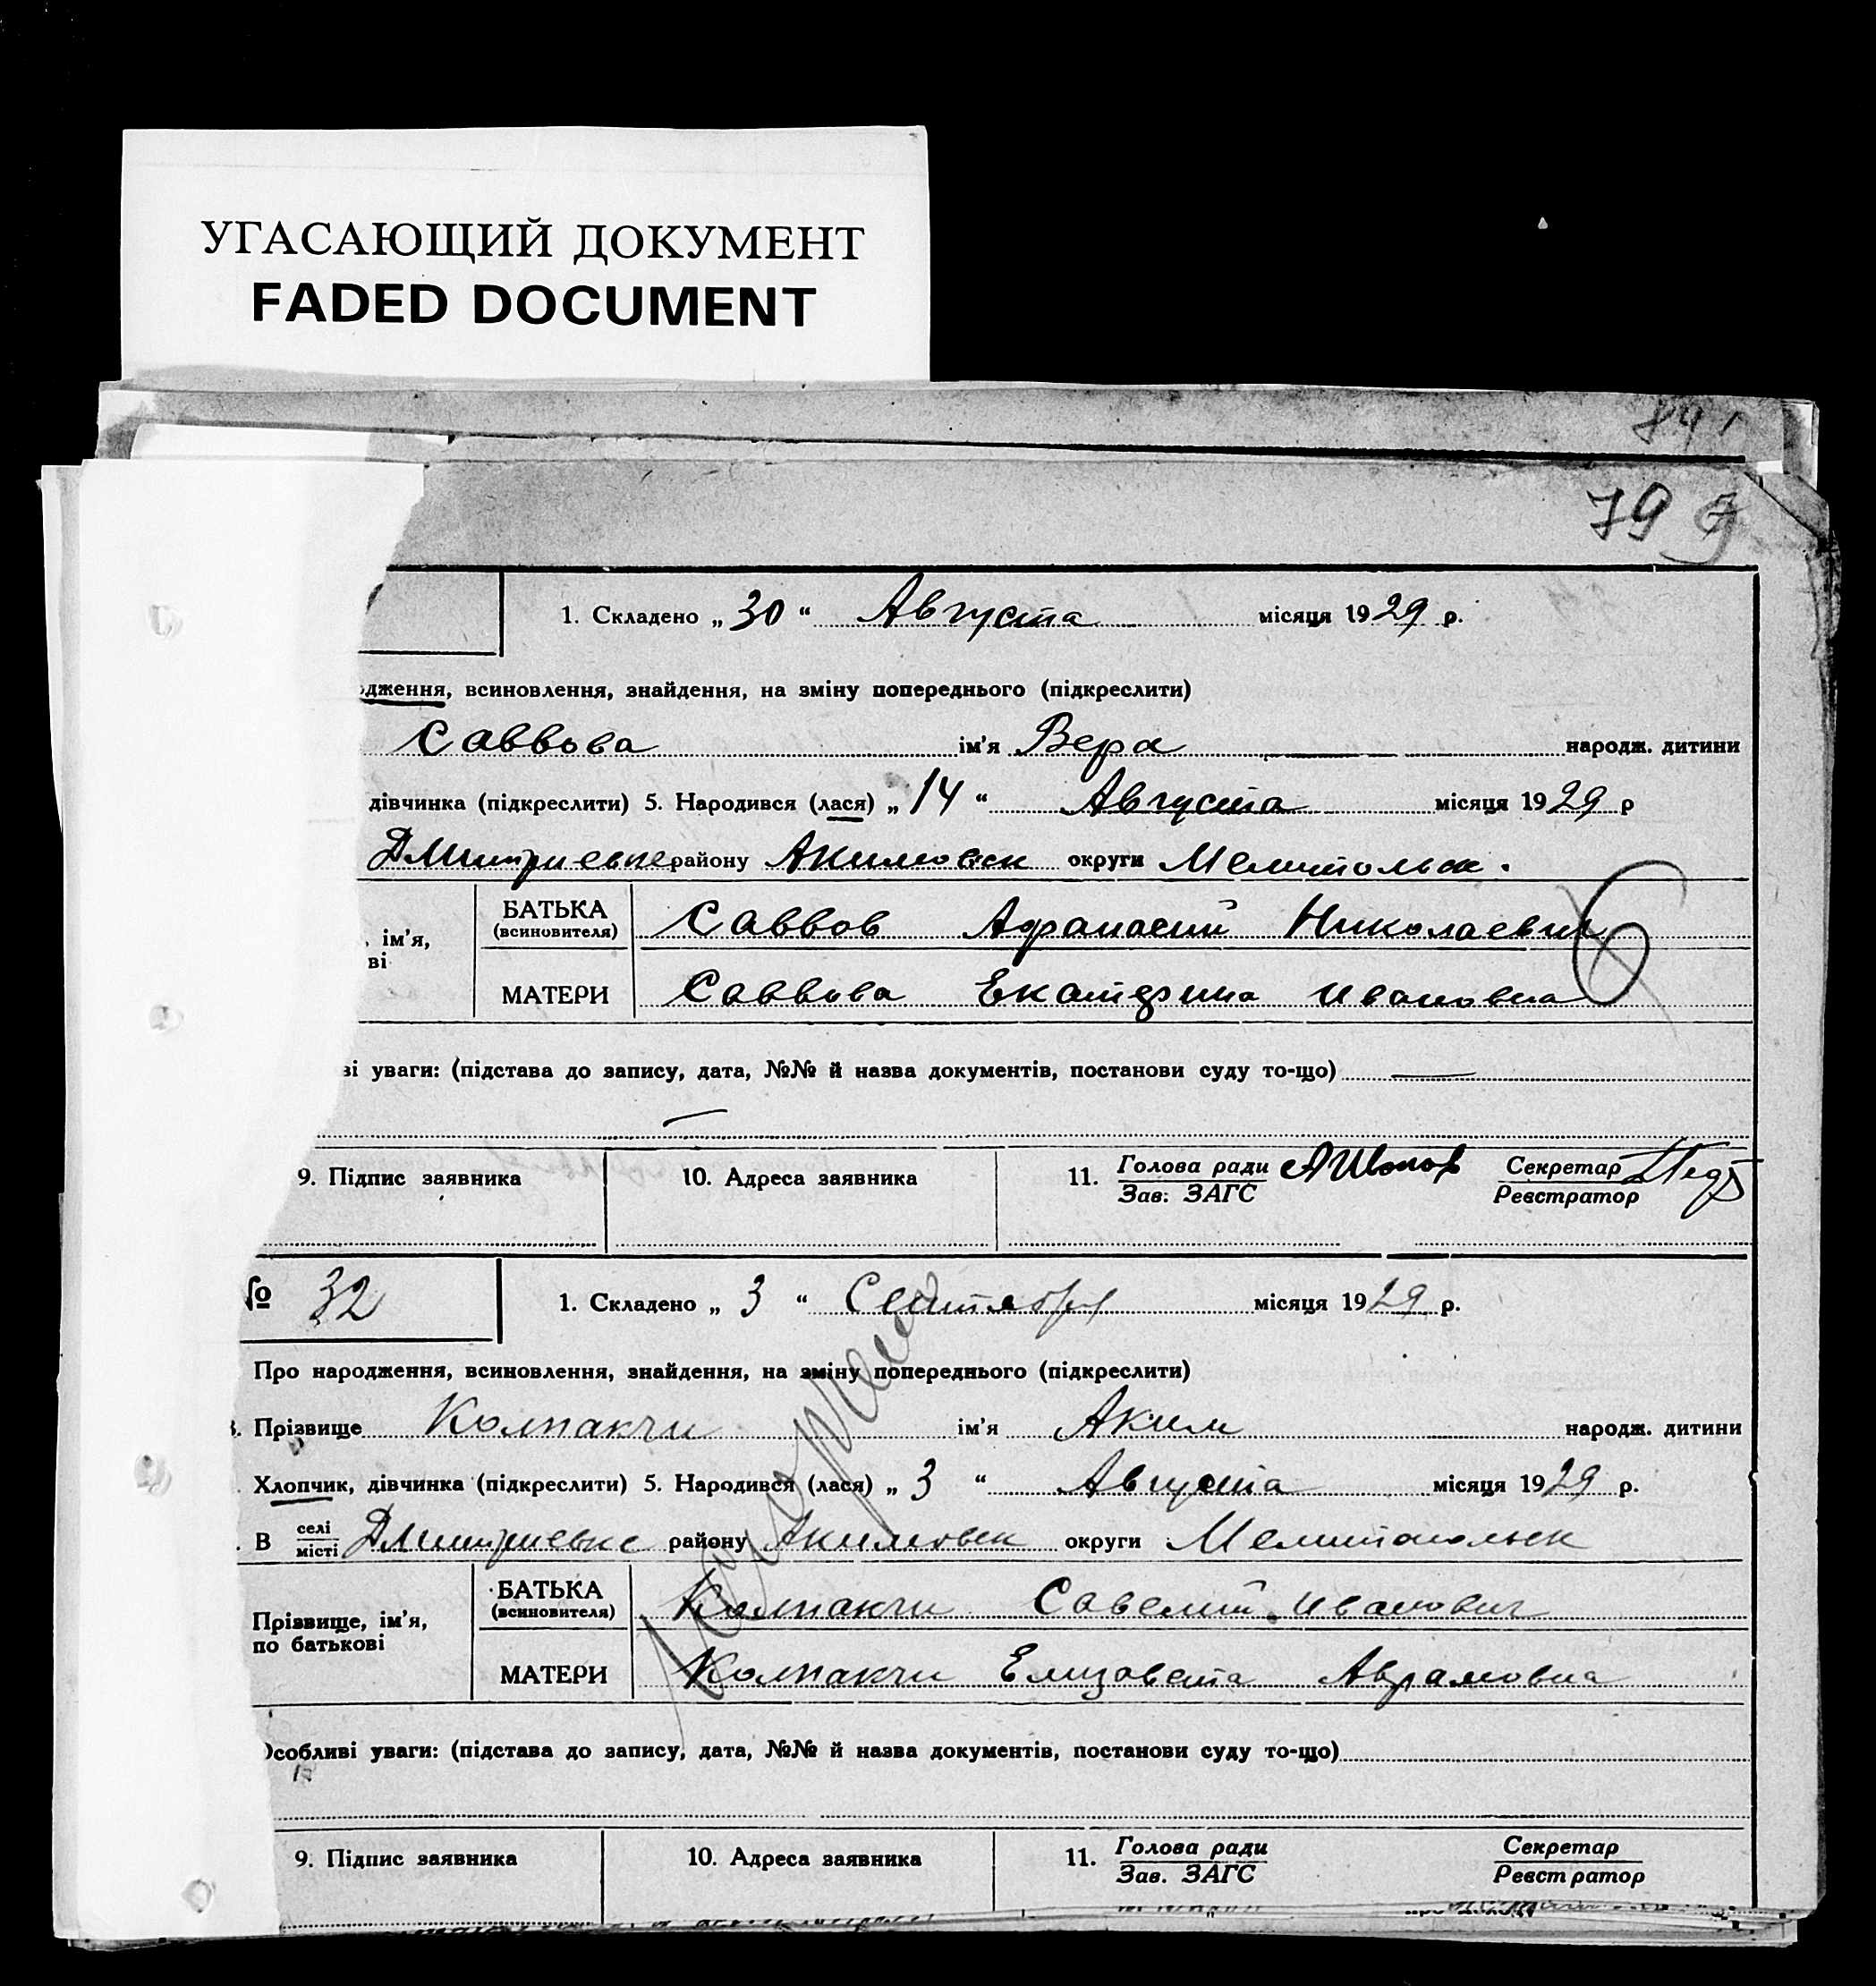 УГАСАЮЩИЙ ДОКУМЕНТ
FADED DOCUMENT
841
79
1. Складено „ 30 “ Августа місяця 1929 р.
одження, всиновлення, знайдення, на зміну попереднього (підкреслити)
Саввова ім’я Вера народж. дитини
дівчинка (підкреслити) 5. Народився (лася) „ 14 “ Августа місяця 1929 р
Дмитриевке району Акимовск округи Мелитольск.
, ім’я,
ві
БАТЬКА
(всиновителя)
Саввов Афанасий Николаевич
МАТЕРИ Саввова Екатерина Ивановна
ві уваги: (підстава до запису, дата, №№ й назва документів, постанови суду то-що)
9. Підпис заявника 10. Адреса заявника 11. Голова ради Секретар
Зав: ЗАГС Реєстратор
№ 32 1. Складено „ 3 “ Сентября місяця 1929 р.
Про народження, всиновлення, знайдення, на зміну попереднього (підкреслити)
3. Прізвище Колпакчи ім’я Аким народж. дитини
Хлопчик, дівчинка (підкреслити) 5. Народився (лася) „ 3 “ Августа місяця 1929 р.
. В селі
місті Дмитриевке району Акимовск округи Мелитопольск
Прізвище, ім’я,
по батькові
БАТЬКА
(всиновителя)
Колпакчи Савелий Иванович
МАТЕРИ Колпакчи Елизовета Аврамовна
Особливі уваги: (підстава до запису, дата, №№ й назва документів, постанови суду то-що)
9. Підпис заявника 10. Адреса заявника 11. Голова ради Секретар
Зав. ЗАГС Реєстратор